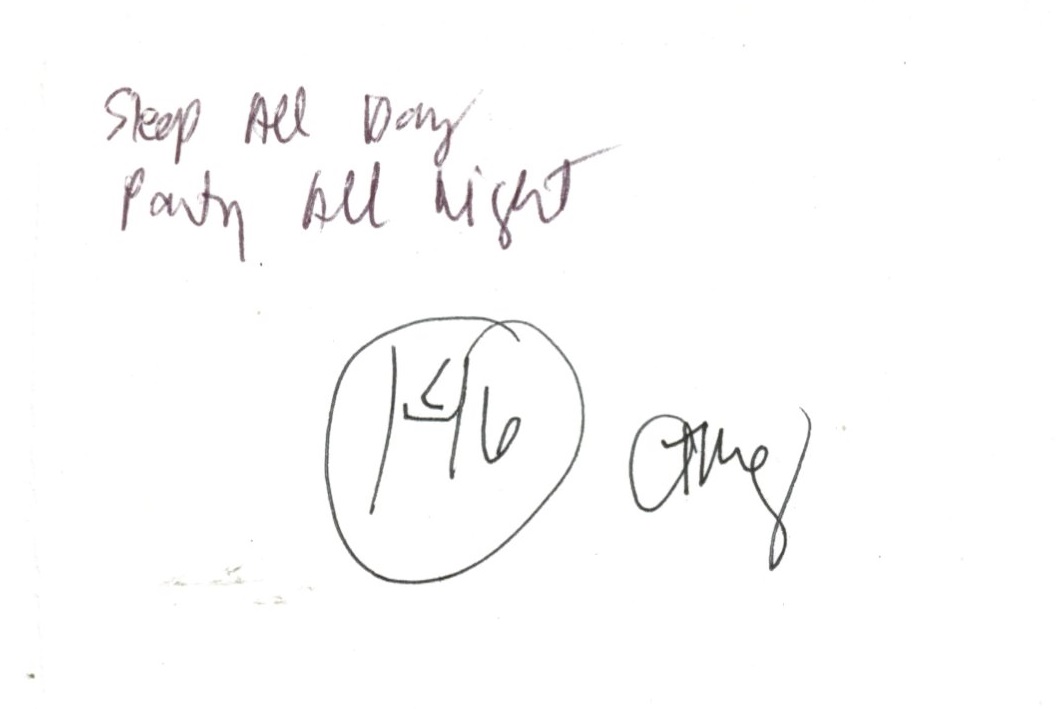 Sleep All Day
Party All Night
146